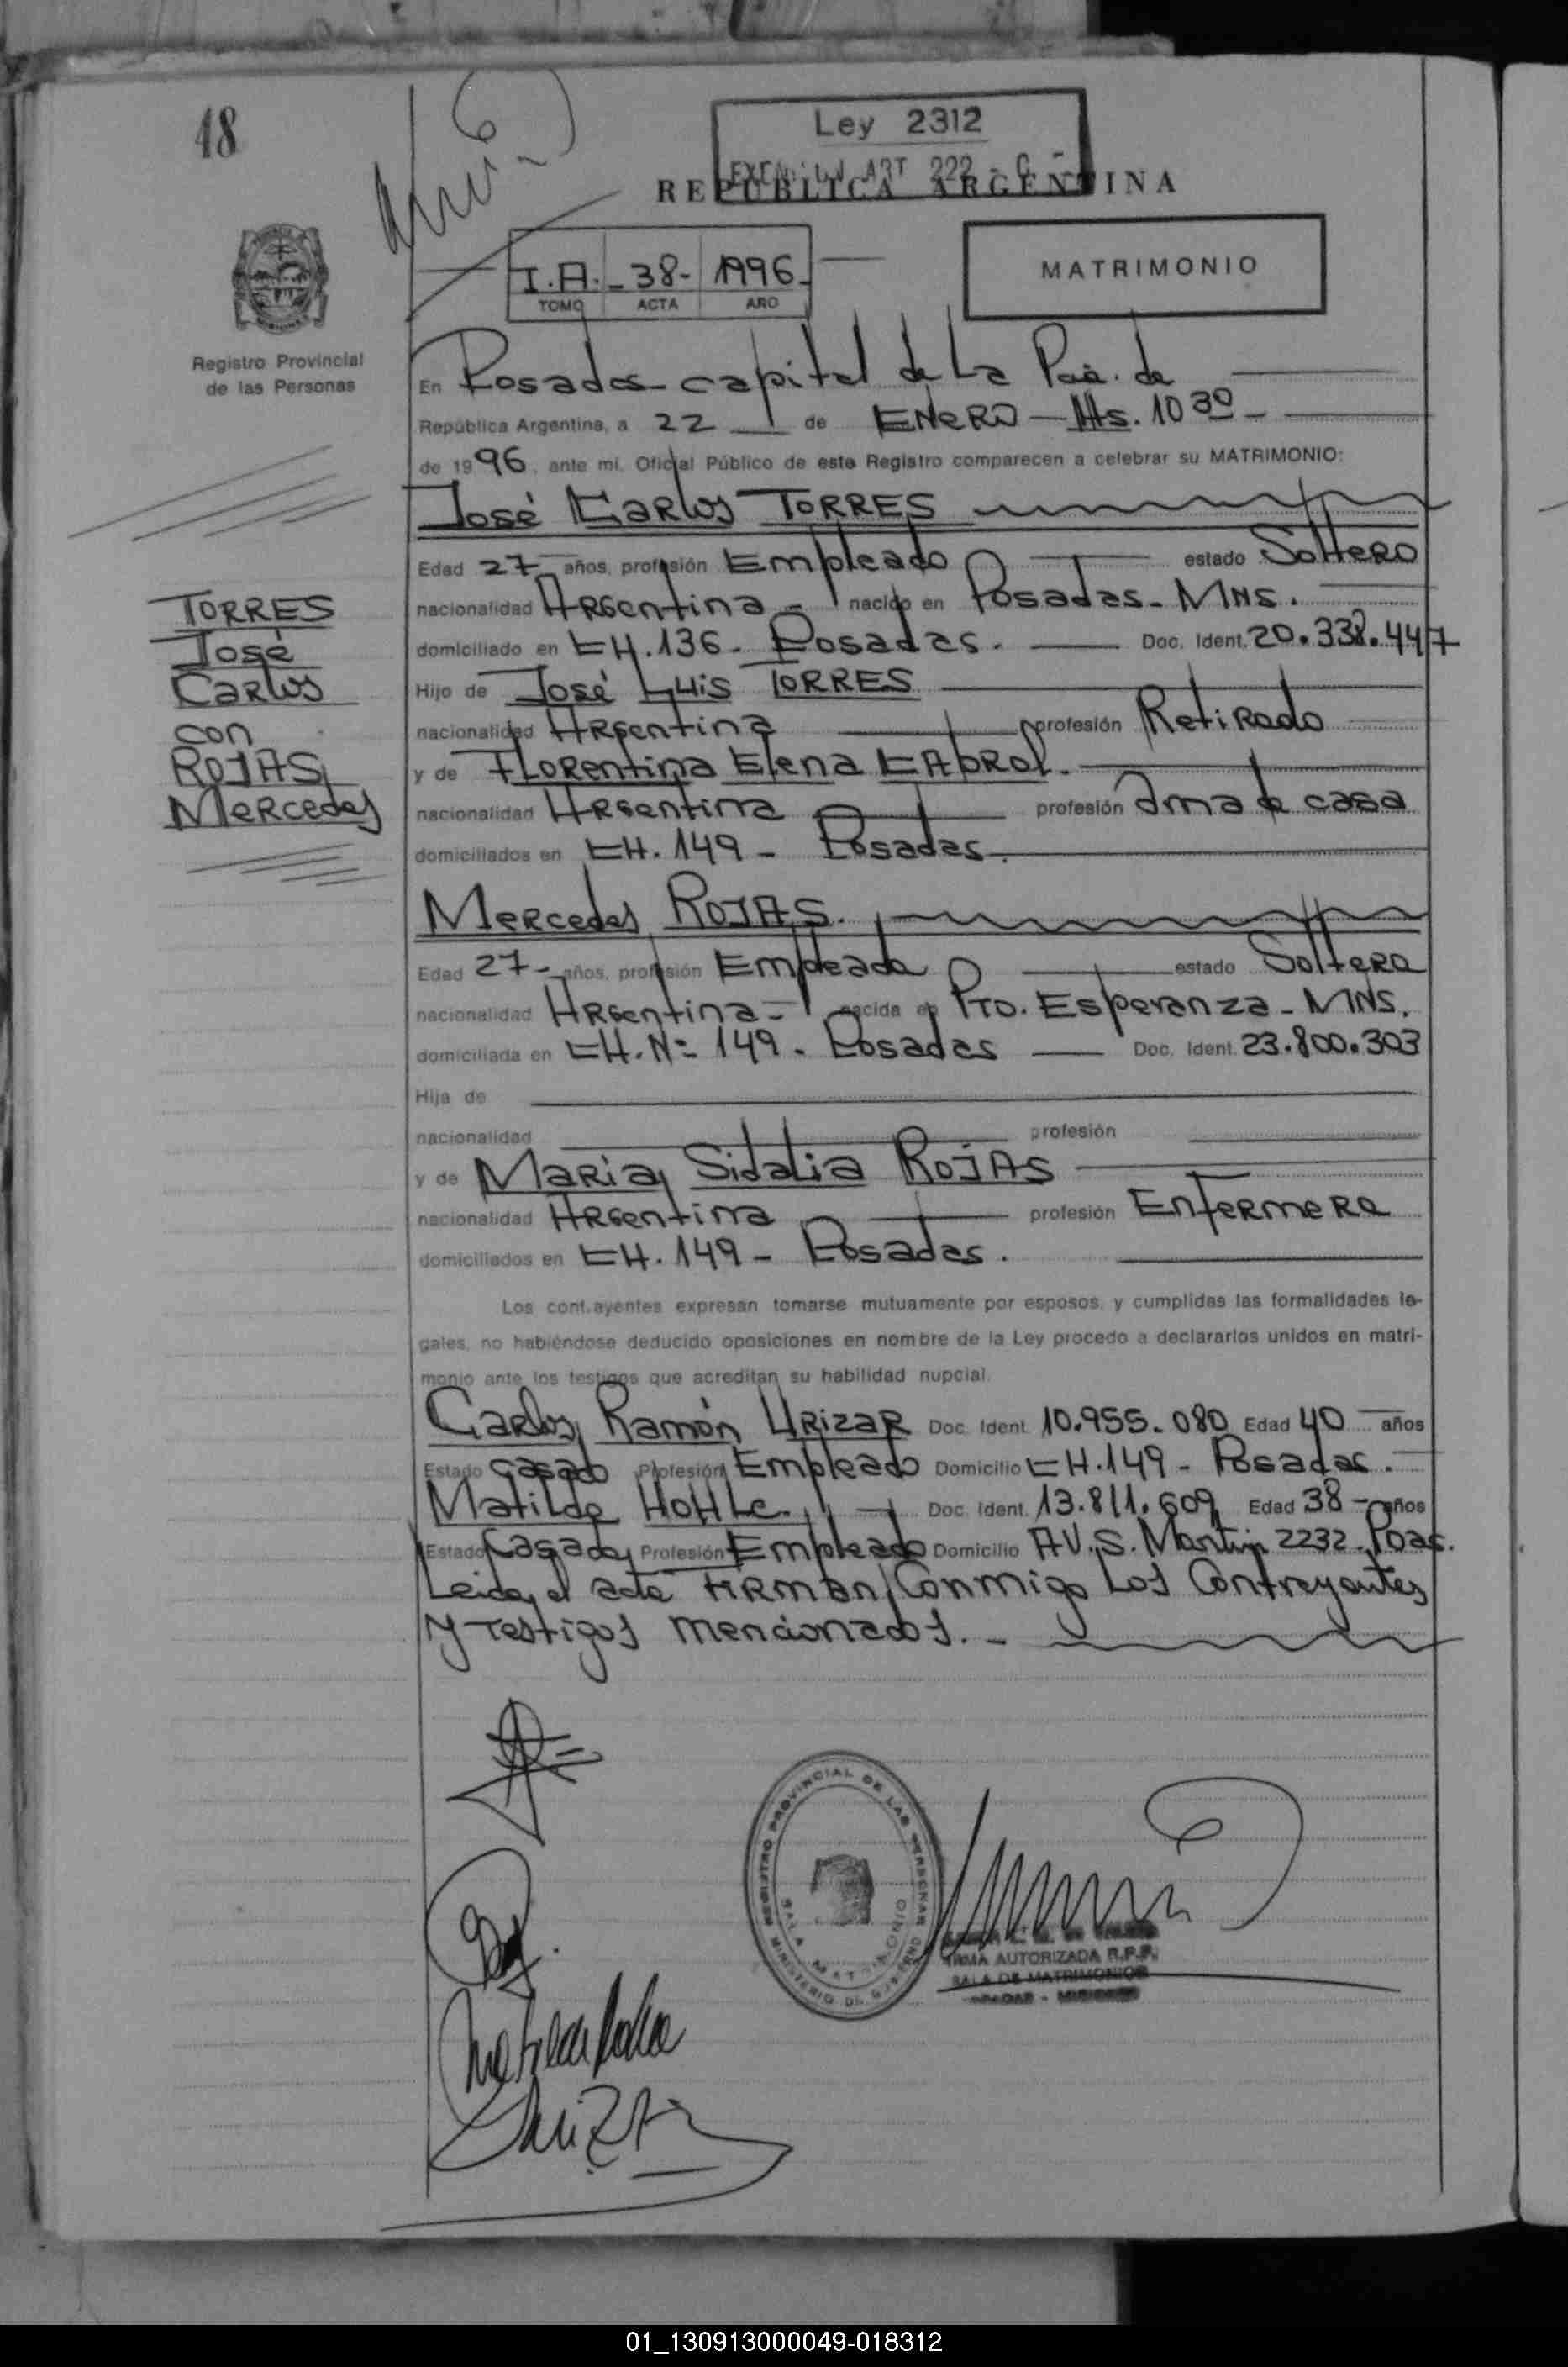 18
Ley 2312
ART 222
REPUBLICA ARGENTINA
I.A. - 38 - 1996 -
TOMO ACTA AÑO
MATRIMONIO
Registro Provincial
de las Personas
En Posadas capital de La Pcia. de
República Argentina, a 22 de ENERO - Hs. 10 30 -
de 1996, ante mi, Oficial Público de este Registro comparecen a celebrar su MATRIMONIO:
José Carlos TORRES
Edad 27 - años, profesión Empleado estado Soltero
nacionalidad Argentina - nacido en Posadas - MNS.
domiciliado en CH. 136 - Posadas. Doc. Ident. 20.338.447
Hijo de José Luis TORRES
nacionalidad Argentina profesión Retirado
y de Florentina Elena CAbRol.
nacionalidad Argentina profesión Ama de casa
domiciliados en CH. 149 - Posadas.
TORRES
José
Carlos
con
ROJAS
Mercedes
Mercedes ROJAS.
Edad 27 - años, profesión Empleada estado Soltera
nacionalidad Argentina - nacida en Pto. Esperanza - MNS.
domiciliada en CH. Nº 149 - Posadas Doc. Ident. 23.800.303
Hija de
nacionalidad profesión
y de María Sidalia ROJAS
nacionalidad Argentina profesión Enfermera
domiciliados en CH. 149 - Posadas.
Los contrayentes expresan tomarse mutuamente por esposos, y cumplidas las formalidades le-
gales, no habiéndose deducido oposiciones en nombre de la Ley procedo a declararlos unidos en matri-
monio ante los testigos que acreditan su habilidad nupcial.
Carlos Ramón URIZAR Doc. Ident. 10.955.080 Edad 40 años
Estado casado Profesión Empleado Domicilio CH. 149 - Posadas.
Matilde HOHLE. Doc. Ident. 13.811.609 Edad 38 - años
Estado Casada Profesión Empleado Domicilio AV. S. Martin 2232 - Pdas.
Leida el acta firman conmigo Los Contrayentes
y Testigos mencionados. -
REGISTRO PROVINCIAL DE LAS PERSONAS
SALA MATRIMONIO
MINISTERIO DE GOBIERNO
FIRMA AUTORIZADA R.P.P.
SALA DE MATRIMONIOS
POSADAS - MISIONES
01_130913000049-018312